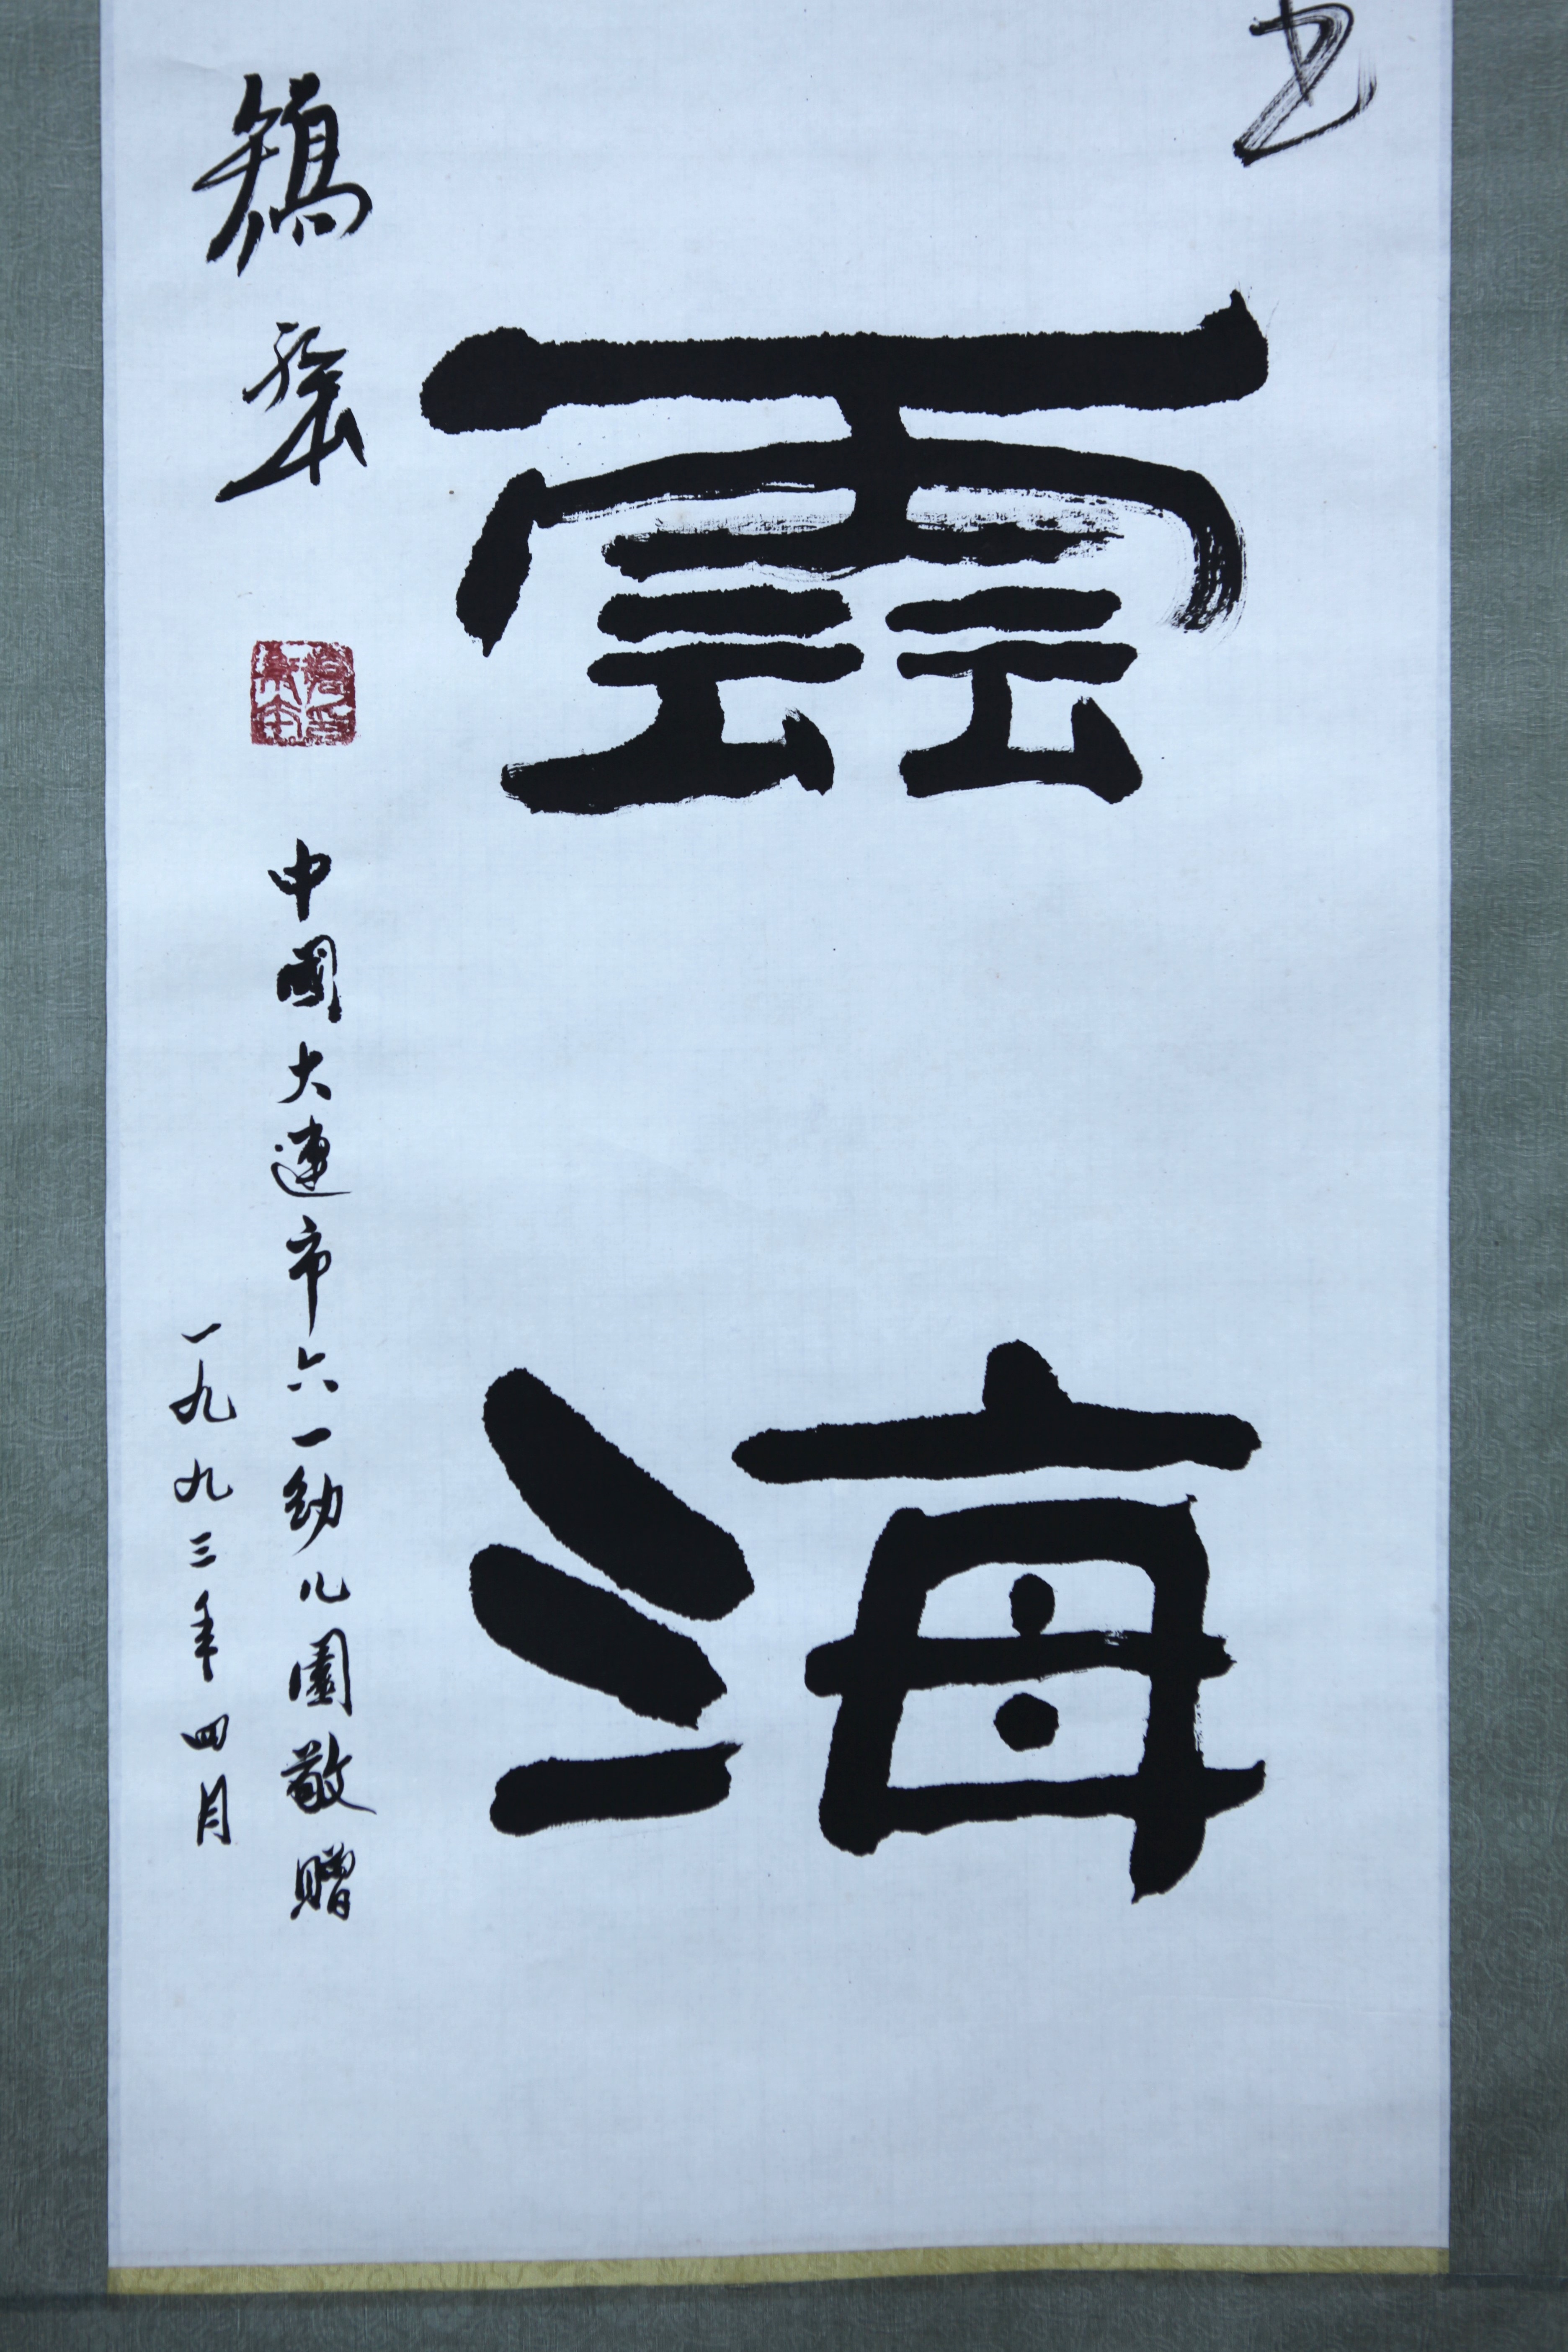 雲海
中國大連市六一幼儿園敬贈
一九九三年四月